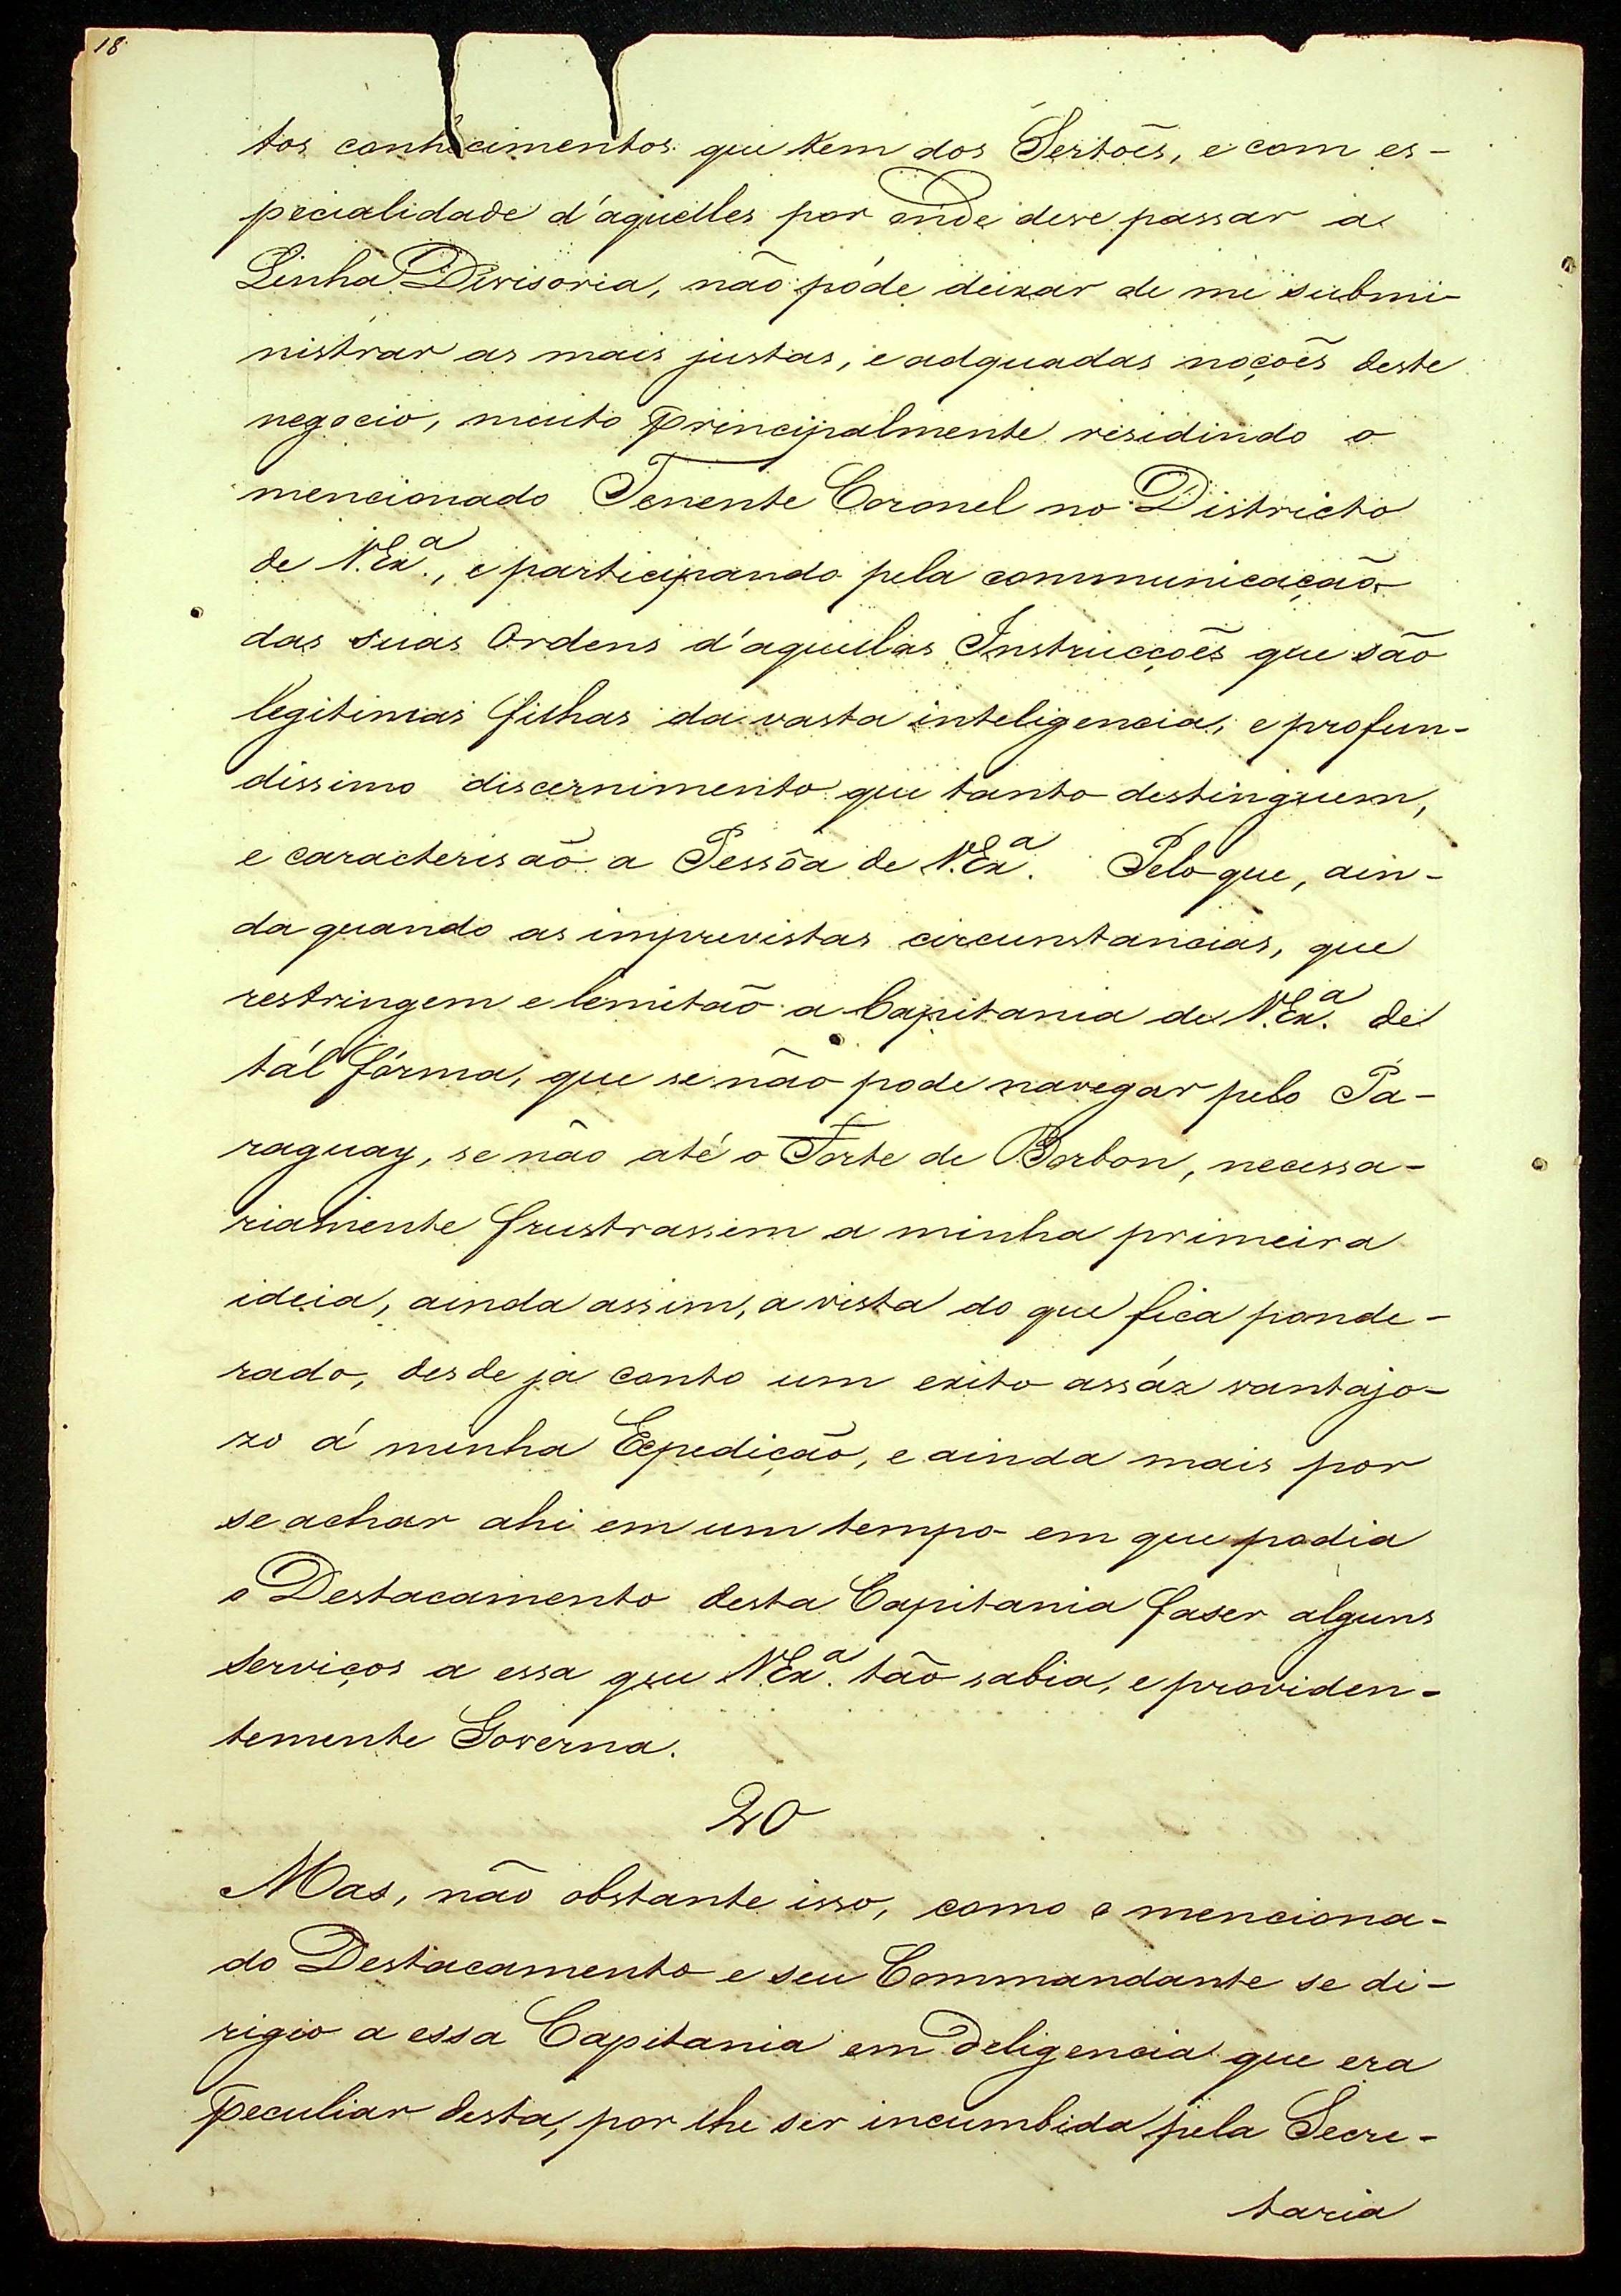 18
tos conhecimentos que tem dos Sertões, e com es-
pecialidade d'aquelles por onde deve passar a
Linha Divisoria, não póde deixar de me submi-
nistrar as mais justas, e adquadas noções deste
negocio, muito principalmente residindo o
mencionado Tenente Coronel no Districto
de V.Exª., e participando pela communicação
das suas Ordens d'aquellas Instrucções que são
legitimas filhas da vasta inteligencia, e profun-
dissimo discernimento que tanto destinguem,
e caracterisaõ a Pessôa de V.Exª. Pelo que, ain-
da quando as imprevistas circunstancias, que
restringem e lemitaõ a Capitania de V.Exª. de
tál fórma, que se não pode navegar pelo Pa-
raguay, se não até o Forte de Borbon, necessa-
riamente frustrassem a minha primeira
ideia, ainda assim, a vista do que fica ponde-
rado, desde já conto um exito assáz vantajo-
zo á minha Expedição, e ainda mais por
se achar ahi em um tempo em que podia
o Destacamento desta Capitania faser alguns
Serviços a essa que V.Exª. tão sabia, e providen-
temente Governa.
20
Mas, não obstante isso, como o menciona-
do Destacamento e seu Commandante se di-
rigio a essa Capitania em Deligencia que era
peculiar desta, por lhe ser incumbida pela Secre-
taria